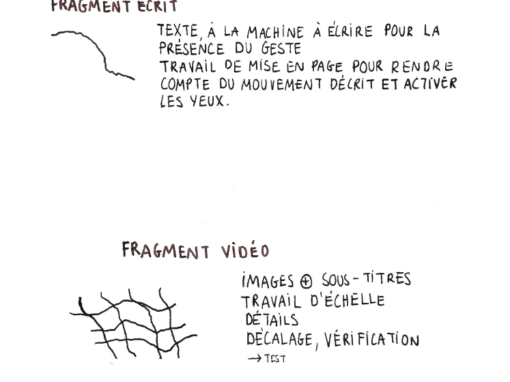 FRAGMENT ÉCRIT
TEXTE, À LA MACHINE À ÉCRIRE POUR LA
PRÉSENCE DU GESTE
TRAVAIL DE MISE EN PAGE POUR RENDRE
COMPTE DU MOUVEMENT DÉCRIT ET ACTIVER
LES YEUX.
FRAGMENT VIDÉO
IMAGES ⊕ SOUS-TITRES
TRAVAIL D'ÉCHELLE
DÉTAILS
DÉCALAGE, VÉRIFICATION
→ TEST